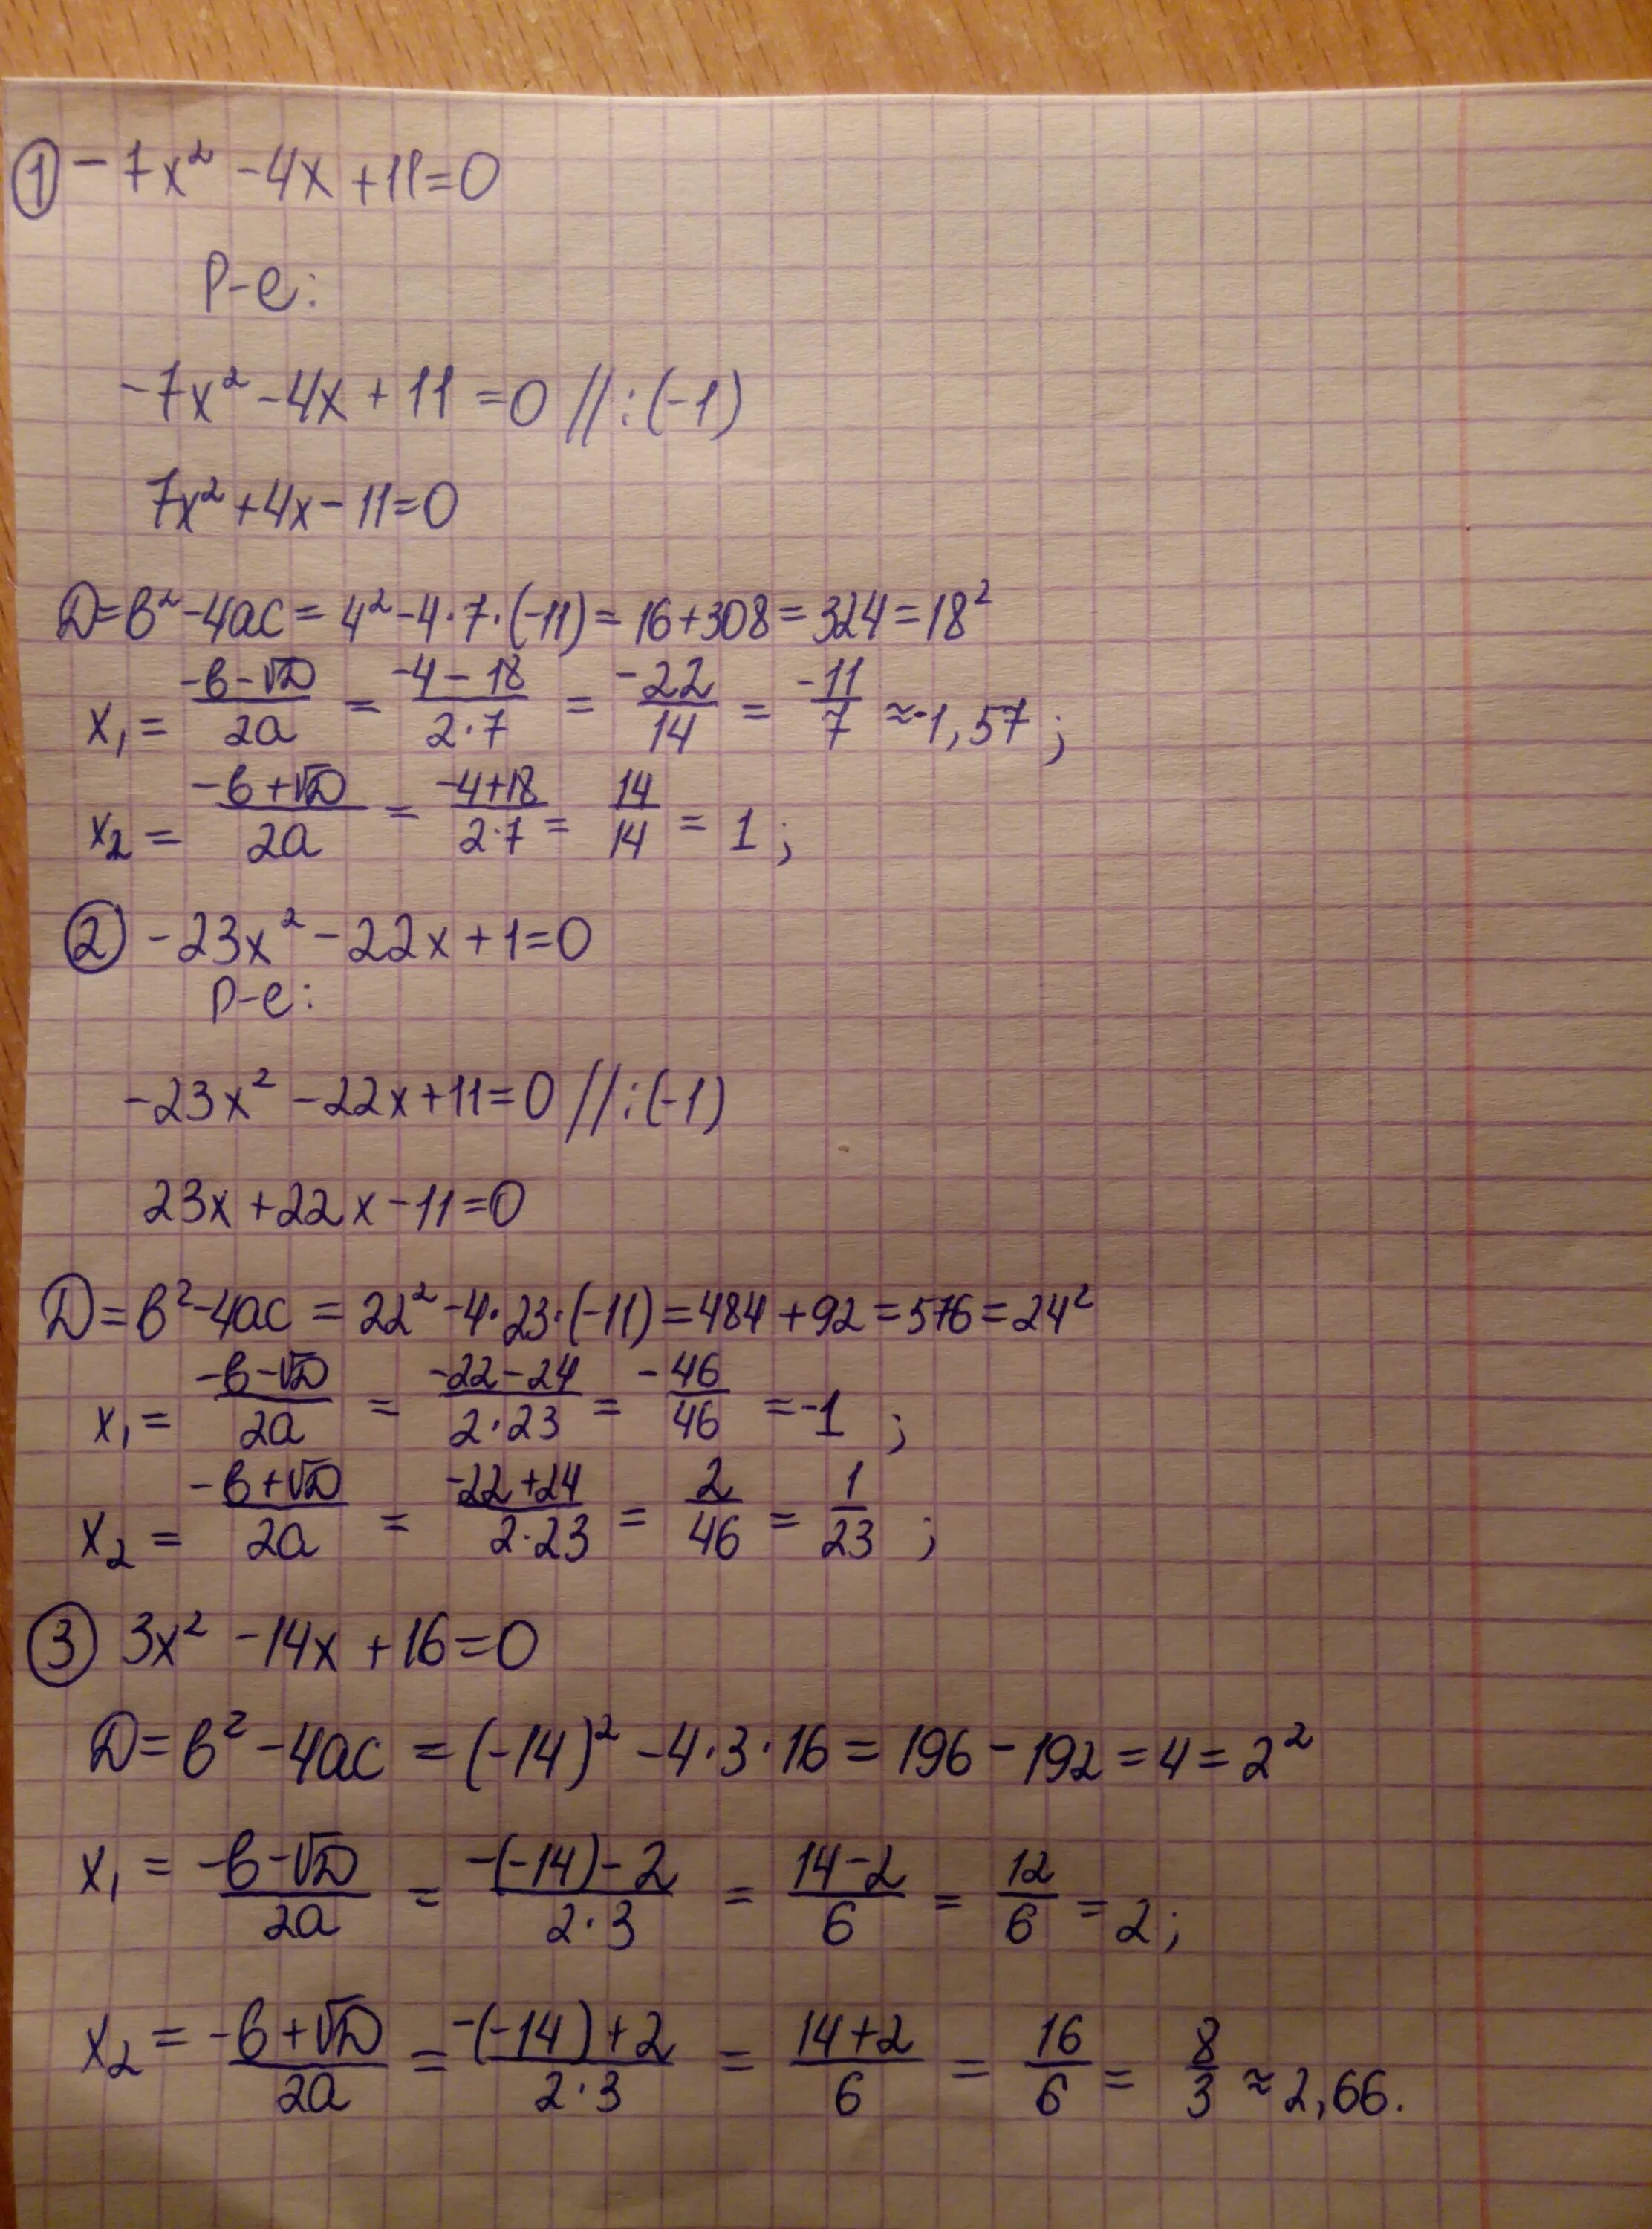 ① -7x² -4x +11=0
Р-е:
-7x² -4x +11 =0 //:(-1)
7x² +4x -11=0
D=b²-4ac = 4²-4·7·(-11) = 16+308 = 324 = 18²
x₁ = (-b-√D)/(2a) = (-4-18)/(2·7) = -22/14 = -11/7 ≈ -1,57;
x₂ = (-b+√D)/(2a) = (-4+18)/(2·7) = 14/14 = 1;
② -23x² -22x +1=0
Р-е:
-23x² -22x+11=0 //:(-1)
23x +22x -11=0
D=b²-4ac = 22² -4·23·(-11) = 484 +92 = 576 = 24²
x₁ = (-b-√D)/(2a) = (-22-24)/(2·23) = -46/46 = -1;
x₂ = (-b+√D)/(2a) = (-22+24)/(2·23) = 2/46 = 1/23;
③ 3x² -14x +16=0
D=b²-4ac = (-14)² -4·3·16 = 196-192 = 4 = 2²
x₁ = (-b-√D)/(2a) = (-(-14)-2)/(2·3) = (14-2)/6 = 12/6 = 2;
x₂ = (-b+√D)/(2a) = (-(-14)+2)/(2·3) = (14+2)/6 = 16/6 = 8/3 ≈ 2,66.